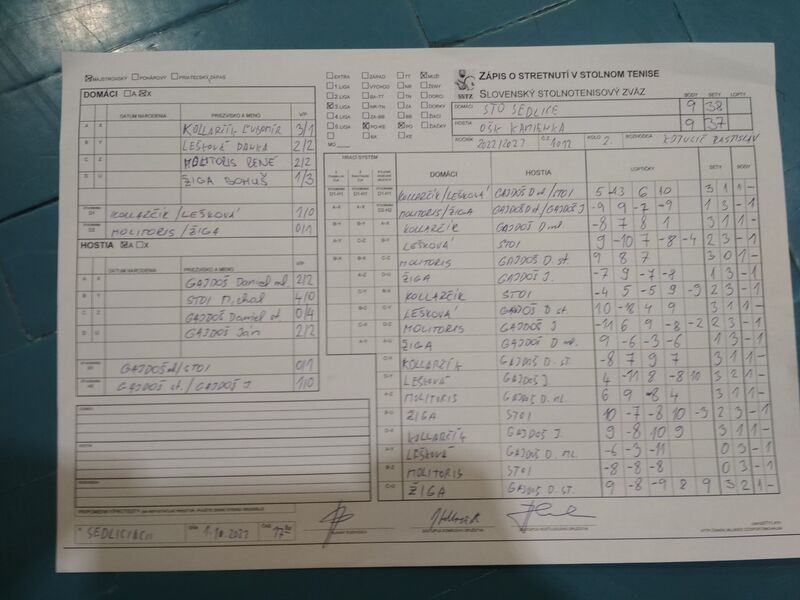 MAJSTROVSKÝ POHÁROVÝ PRIATEĽSKÝ ZÁPAS
DOMÁCI A X
DÁTUM NARODENIA PRIEZVISKO A MENO V/P
A X KOLLARČÍK ĽUBOMÍR 3/1
B Y LEŠKOVÁ DANKA 2/2
C Z MOLITORIS RENE 2/2
D U ŽIGA BOHUŠ 1/3
D1 KOLLARČÍK/LEŠKOVÁ 1/0
D2 MOLITORIS/ŽIGA 0/1
HOSTIA A X
DÁTUM NARODENIA PRIEZVISKO A MENO V/P
A X GAJDOŠ Daniel ml. 2/2
B Y STOI Michal 4/0
C Z GAJDOŠ Daniel st. 0/4
D U GAJDOŠ Ján 2/2
GAJDOŠ ml/STOI 0/1
GAJDOŠ st./GAJDOŠ J. 1/0
DOMÁCI
HOSTIA
SEDLICIACH DŇA 1.10.2022 ČAS 17:00
EXTRA ZÁPAD TT MUŽI
1.LIGA VÝCHOD NR ŽENY
2.LIGA BA-TT TN DORCI
3.LIGA NR-TN ZA DORKY
4.LIGA ZA-BB BB ŽIACI
5.LIGA PO-KE PO ŽIAČKY
BA KE
NA
SSTZ
ZÁPIS O STRETNUTÍ V STOLNOM TENISE
SLOVENSKÝ STOLNOTENISOVÝ ZVÄZ
BODY SETY LOPTY
DOMÁCI STO SEDLICE 9 38
HOSTIA OŠK KAMIENKA 9 37
ROČNÍK 2022/2023 Č.Z. 1012 KOLO 2. ROZHODCA RASTISLAV
HRACÍ SYSTÉM
DOMÁCI HOSTIA LOPTIČKY SETY BODY
KOLLARČÍK/LEŠKOVÁ GAJDOŠ ml/STOI 5 -13 6 10 3 1 1 -
MOLITORIS/ŽIGA GAJDOŠ D st/GAJDOŠ J -9 9 -7 -9 1 3 - 1
KOLLARČÍK GAJDOŠ D. ml. -8 7 8 1 3 1 1 -
LEŠKOVÁ STOI 9 -10 7 -8 -4 2 3 - 1
MOLITORIS GAJDOŠ D. st 9 8 7 3 0 1 -
ŽIGA GAJDOŠ J. -7 9 -7 -8 1 3 - 1
KOLLARČÍK STOI -4 5 -5 9 -9 2 3 - 1
LEŠKOVÁ GAJDOŠ D. st. 10 -18 4 9 3 1 1 -
MOLITORIS GAJDOŠ J -11 6 9 -8 -2 2 3 - 1
ŽIGA GAJDOŠ D. ml. 9 -6 -3 -6 1 3 - 1
KOLLARČÍK GAJDOŠ D. ST. -8 7 9 7 3 1 1 -
LEŠKOVÁ GAJDOŠ J. 4 -11 8 -8 10 3 2 1 -
MOLITORIS GAJDOŠ D. ml. 6 9 -8 4 3 1 1 -
ŽIGA STOI 10 -7 -8 10 -3 2 3 - 1
KOLLARČÍK GAJDOŠ J. 9 -8 10 9 3 1 1 -
LEŠKOVÁ GAJDOŠ D. ML. -6 -3 -11 0 3 - 1
MOLITORIS STOI -8 -8 -8 0 3 - 1
ŽIGA GAJDOŠ D. ST. 9 -8 -9 8 9 3 2 1 -